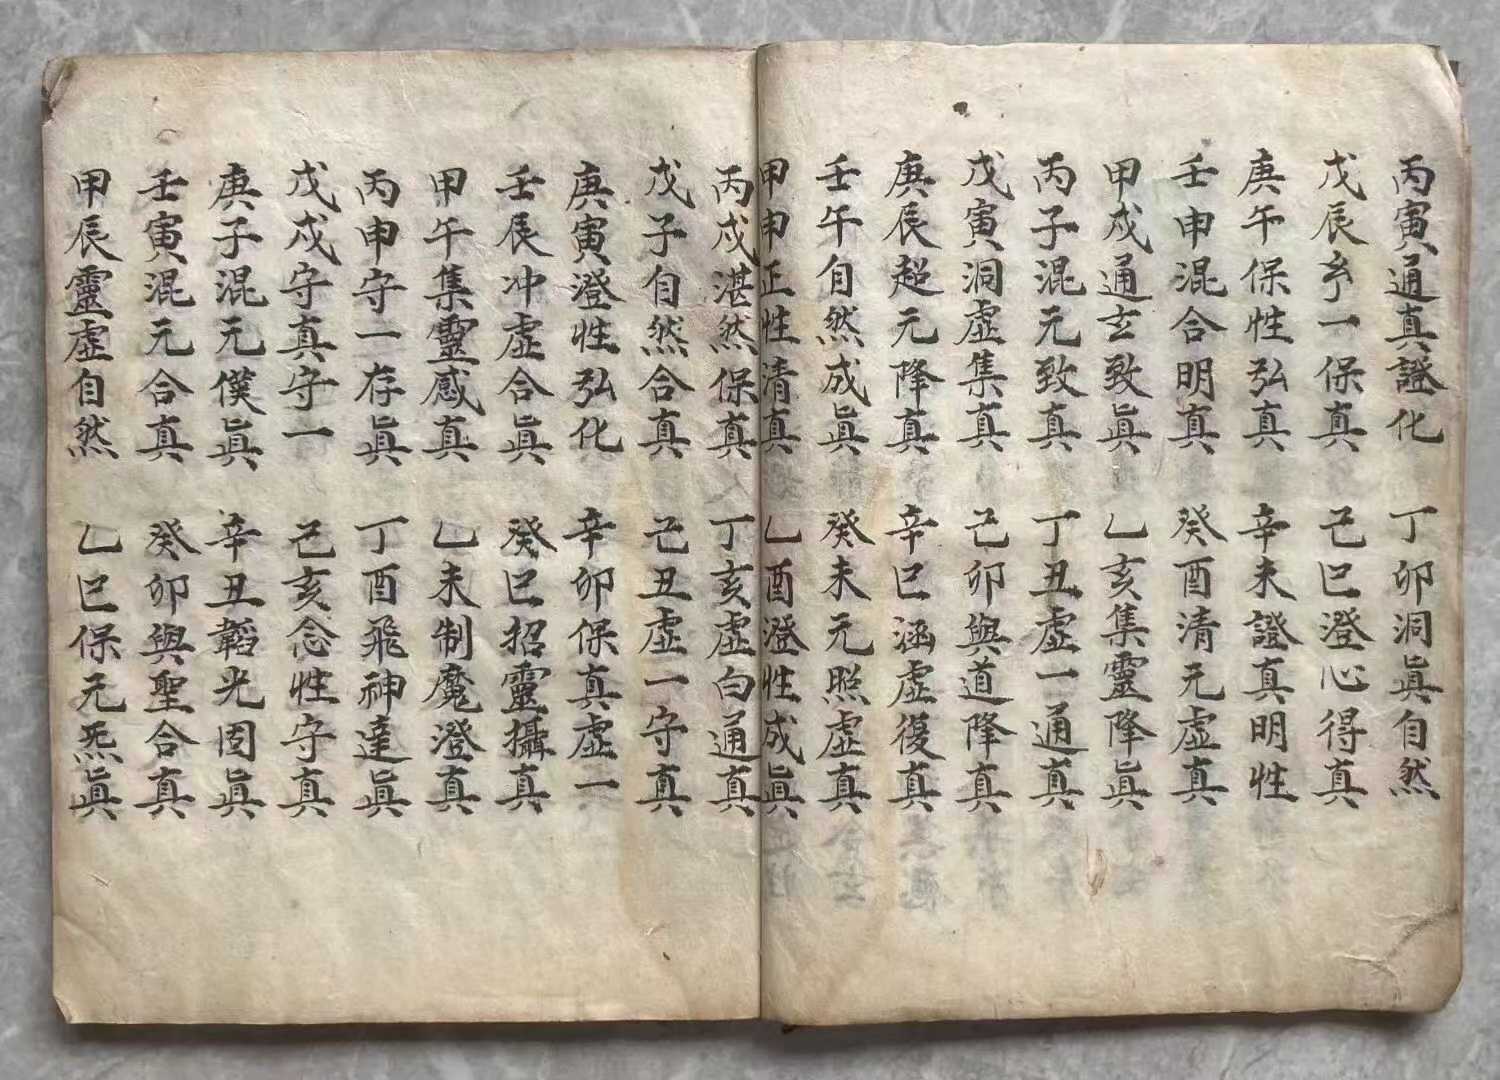 丙寅通真證化 丁卯洞眞自然
戊辰一保真 己巳澄心得真
庚午保性弘真 辛未證真明性
壬申混合明真 癸酉清元虛真
甲戌通玄致眞 乙亥集靈降眞
丙子混元致真 丁丑虛一通真
戊寅洞虛集真 己卯與道降真
庚辰超元降真 辛巳涵虛復真
壬午自然成眞 癸未元照虛真
甲申正性清真 乙酉澄性成眞
丙戌湛然保真 丁亥虛白通真
戊子自然合真 己丑虛一守真
庚寅澄性弘化 辛卯保真虛一
壬辰冲虛合眞 癸巳招靈攝真
甲午集靈感真 乙未制魔澄真
丙申守一存眞 丁酉飛神達眞
戊戌守真守一 己亥念性守真
庚子混元僕眞 辛丑韜光固眞
壬寅混元合真 癸卯與聖合真
甲辰靈虛自然 乙巳保元炁眞